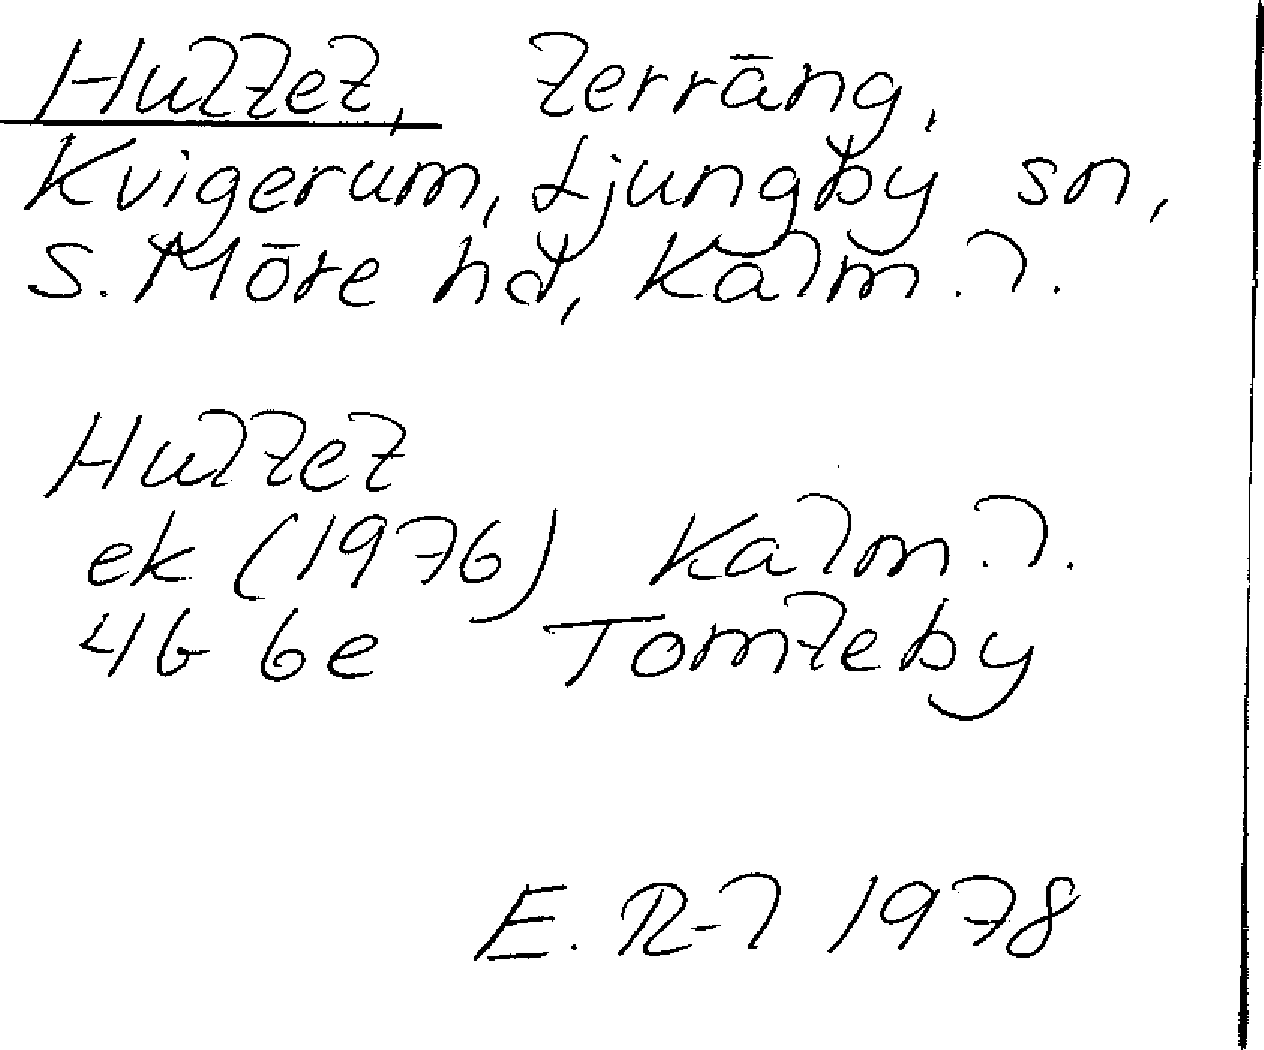 Hultet, terräng,
Kvigerum, Ljungby sn,
S. Möre hd, Kalm. l.
Hultet
ek (1976) Kalm. l.
4G 6e Tomteby
E. R-l 1978